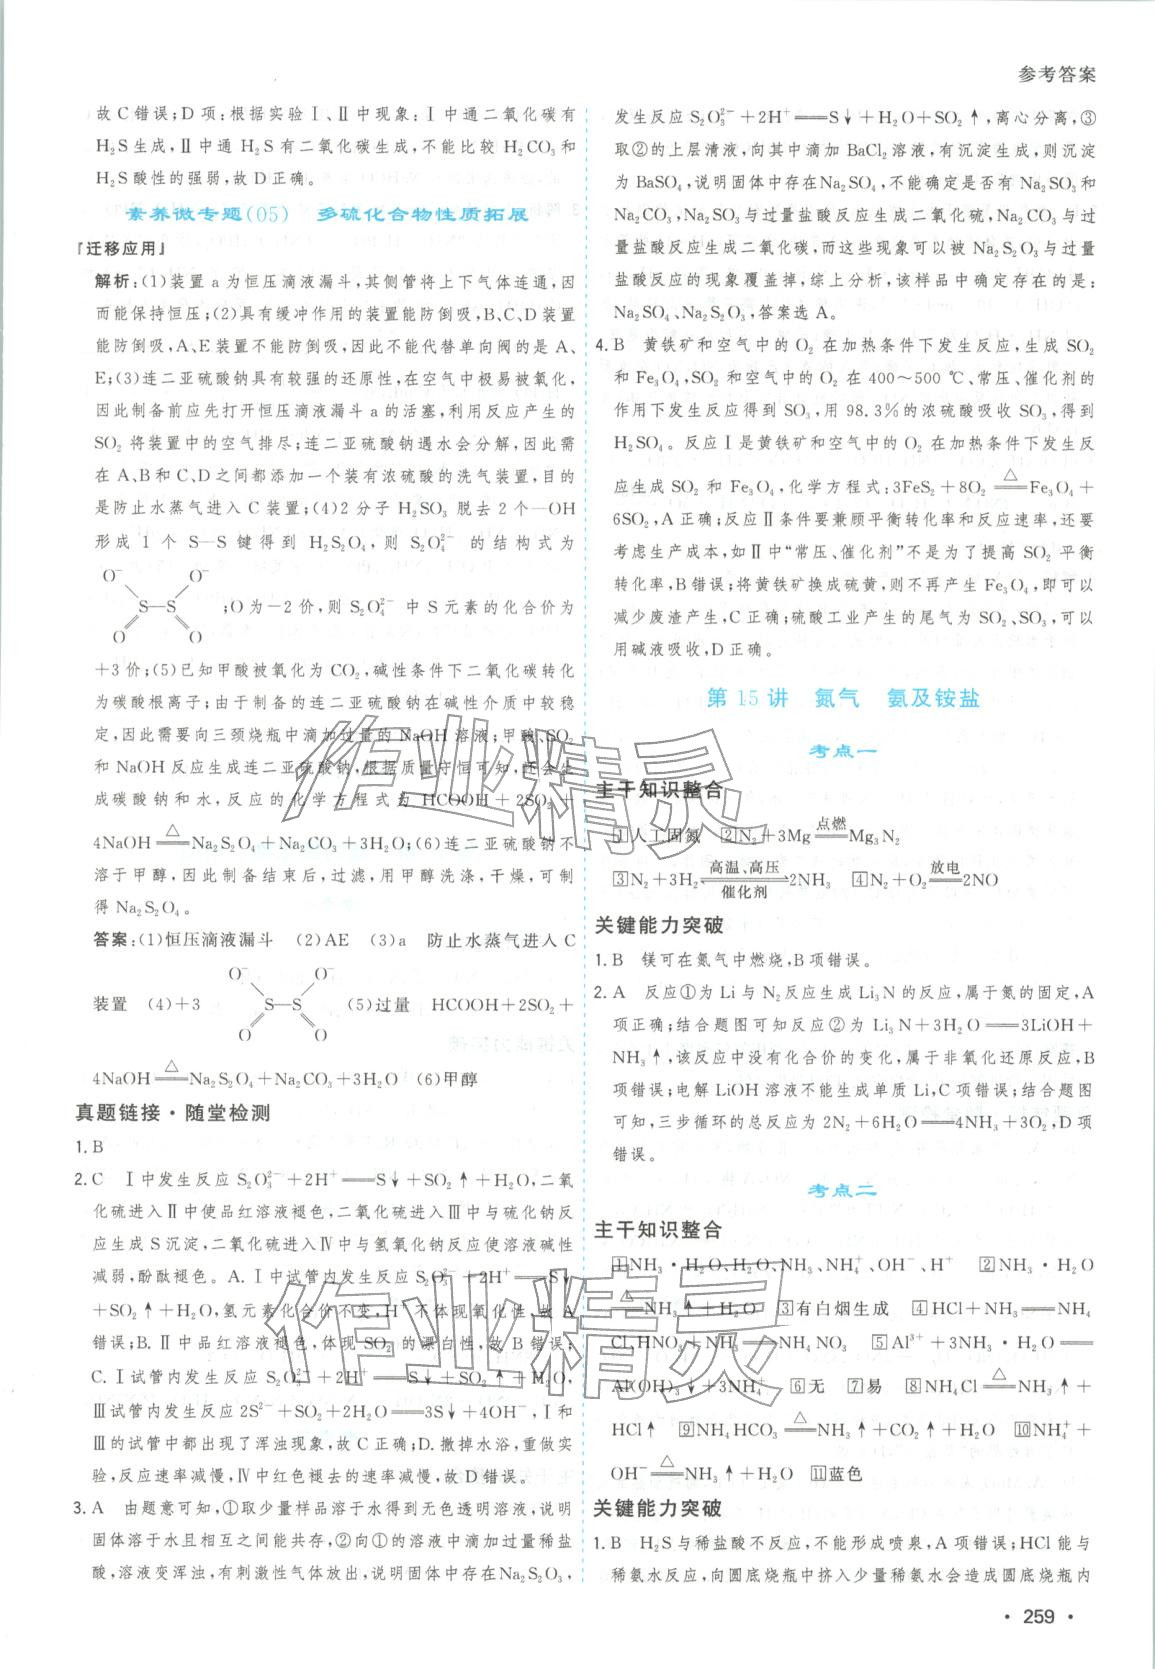 参考答案
故C错误;D项:根据实验Ⅰ、Ⅱ中现象:Ⅰ中通二氧化碳有
H₂S生成,Ⅱ中通H₂S有二氧化碳生成,不能比较H₂CO₃和
H₂S酸性的强弱,故D正确。
素养微专题(05) 多硫化合物性质拓展
「迁移应用」
解析:(1)装置a为恒压滴液漏斗,其侧管将上下气体连通,因
而能保持恒压;(2)具有缓冲作用的装置能防倒吸,B、C、D装置
能防倒吸,A、E装置不能防倒吸,因此不能代替单向阀的是A、
E;(3)连二亚硫酸钠具有较强的还原性,在空气中极易被氧化,
因此制备前应先打开恒压滴液漏斗a的活塞,利用反应产生的
SO₂将装置中的空气排尽;连二亚硫酸钠遇水会分解,因此需
在A、B和C、D之间都添加一个装有浓硫酸的洗气装置,目的
是防止水蒸气进入C装置;(4)2分子H₂SO₃脱去2个—OH
形成1个S—S键得到H₂S₂O₄,则S₂O₄²⁻的结构式为
O⁻ O⁻
S—S ;O为-2价,则S₂O₄²⁻中S元素的化合价为
O O
+3价;(5)已知甲酸被氧化为CO₂,碱性条件下二氧化碳转化
为碳酸根离子;由于制备的连二亚硫酸钠在碱性介质中较稳
定,因此需要向三颈烧瓶中滴加过量的NaOH溶液;甲酸、SO₂
和NaOH反应生成连二亚硫酸钠,根据质量守恒可知,还会生
成碳酸钠和水,反应的化学方程式为HCOOH+2SO₂+
4NaOH══△══Na₂S₂O₄+Na₂CO₃+3H₂O;(6)连二亚硫酸钠不
溶于甲醇,因此制备结束后,过滤,用甲醇洗涤,干燥,可制
得Na₂S₂O₄。
答案:(1)恒压滴液漏斗 (2)AE (3)a 防止水蒸气进入C
O⁻ O⁻
装置 (4)+3 S—S (5)过量 HCOOH+2SO₂+
O O
4NaOH══△══Na₂S₂O₄+Na₂CO₃+3H₂O (6)甲醇
真题链接·随堂检测
1.B
2.C Ⅰ中发生反应S₂O₃²⁻+2H⁺══S↓+SO₂↑+H₂O,二氧
化硫进入Ⅱ中使品红溶液褪色,二氧化硫进入Ⅲ中与硫化钠反
应生成S沉淀,二氧化硫进入Ⅳ中与氢氧化钠反应使溶液碱性
减弱,酚酞褪色。A.Ⅰ中试管内发生反应S₂O₃²⁻+2H⁺══S↓
+SO₂↑+H₂O,氢元素化合价不变,H⁺不体现氧化性,故A
错误;B.Ⅱ中品红溶液褪色,体现SO₂的漂白性,故B错误;
C.Ⅰ试管内发生反应S₂O₃²⁻+2H⁺══S↓+SO₂↑+H₂O,
Ⅲ试管内发生反应2S²⁻+SO₂+2H₂O══3S↓+4OH⁻,Ⅰ和
Ⅲ的试管中都出现了浑浊现象,故C正确;D.撤掉水浴,重做实
验,反应速率减慢,Ⅳ中红色褪去的速率减慢,故D错误。
3.A 由题意可知,①取少量样品溶于水得到无色透明溶液,说明
固体溶于水且相互之间能共存,②向①的溶液中滴加过量稀盐
酸,溶液变浑浊,有刺激性气体放出,说明固体中存在Na₂S₂O₃,
发生反应S₂O₃²⁻+2H⁺══S↓+H₂O+SO₂↑,离心分离,③
取②的上层清液,向其中滴加BaCl₂溶液,有沉淀生成,则沉淀
为BaSO₄,说明固体中存在Na₂SO₄,不能确定是否有Na₂SO₃和
Na₂CO₃,Na₂SO₃与过量盐酸反应生成二氧化硫,Na₂CO₃与过
量盐酸反应生成二氧化碳,而这些现象可以被Na₂S₂O₃与过量
盐酸反应的现象覆盖掉,综上分析,该样品中确定存在的是:
Na₂SO₄、Na₂S₂O₃,答案选A。
4.B 黄铁矿和空气中的O₂在加热条件下发生反应,生成SO₂
和Fe₃O₄,SO₂和空气中的O₂在400~500 ℃、常压、催化剂的
作用下发生反应得到SO₃,用98.3%的浓硫酸吸收SO₃,得到
H₂SO₄。反应Ⅰ是黄铁矿和空气中的O₂在加热条件下发生反
应生成SO₂和Fe₃O₄,化学方程式:3FeS₂+8O₂══△══Fe₃O₄+
6SO₂,A正确;反应Ⅱ条件要兼顾平衡转化率和反应速率,还要
考虑生产成本,如Ⅱ中“常压、催化剂”不是为了提高SO₂平衡
转化率,B错误;将黄铁矿换成硫黄,则不再产生Fe₃O₄,即可以
减少废渣产生,C正确;硫酸工业产生的尾气为SO₂、SO₃,可以
用碱液吸收,D正确。
第15讲 氮气 氨及铵盐
考点一
主干知识整合
1人工固氮 2N₂+3Mg══点燃══Mg₃N₂
3N₂+3H₂⇌(高温、高压/催化剂)2NH₃ 4N₂+O₂══放电══2NO
关键能力突破
1.B 镁可在氮气中燃烧,B项错误。
2.A 反应①为Li与N₂反应生成Li₃N的反应,属于氮的固定,A
项正确;结合题图可知反应②为Li₃N+3H₂O══3LiOH+
NH₃↑,该反应中没有化合价的变化,属于非氧化还原反应,B
项错误;电解LiOH溶液不能生成单质Li,C项错误;结合题图
可知,三步循环的总反应为2N₂+6H₂O══4NH₃+3O₂,D项
错误。
考点二
主干知识整合
1NH₃·H₂O、H₂O、NH₃、NH₄⁺、OH⁻、H⁺ 2NH₃·H₂O
══△══NH₃↑+H₂O 3有白烟生成 4HCl+NH₃══NH₄
Cl、HNO₃+NH₃══NH₄NO₃ 5Al³⁺+3NH₃·H₂O══
Al(OH)₃↓+3NH₄⁺ 6无 7易 8NH₄Cl══△══NH₃↑+
HCl↑ 9NH₄HCO₃══△══NH₃↑+CO₂↑+H₂O 10NH₄⁺+
OH⁻══△══NH₃↑+H₂O 11蓝色
关键能力突破
1.B H₂S与稀盐酸不反应,不能形成喷泉,A项错误;HCl能与
稀氨水反应,向圆底烧瓶中挤入少量稀氨水会造成圆底烧瓶内
·259·
作业精灵
作业精灵